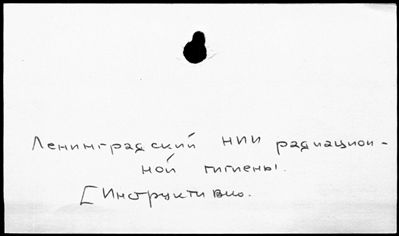 Ленинградский НИИ радиацион-
ной гигиены.
[Инструктивно.